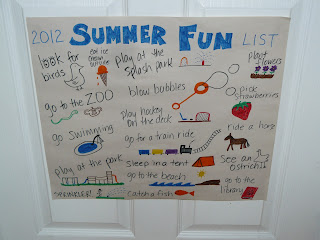 2012 SUMMER FUN LIST
look for
birds
eat ice
cream
outside
play at the
splash park
plant
flowers
go to the ZOO
blow bubbles
pick
strawberries
play hockey
on the deck
go swimming
go for a train ride
ride a horse
play at the park
sleep in a tent
see an
ostrich
SPRINKLER!
go to the beach
catch a fish
go to the
library